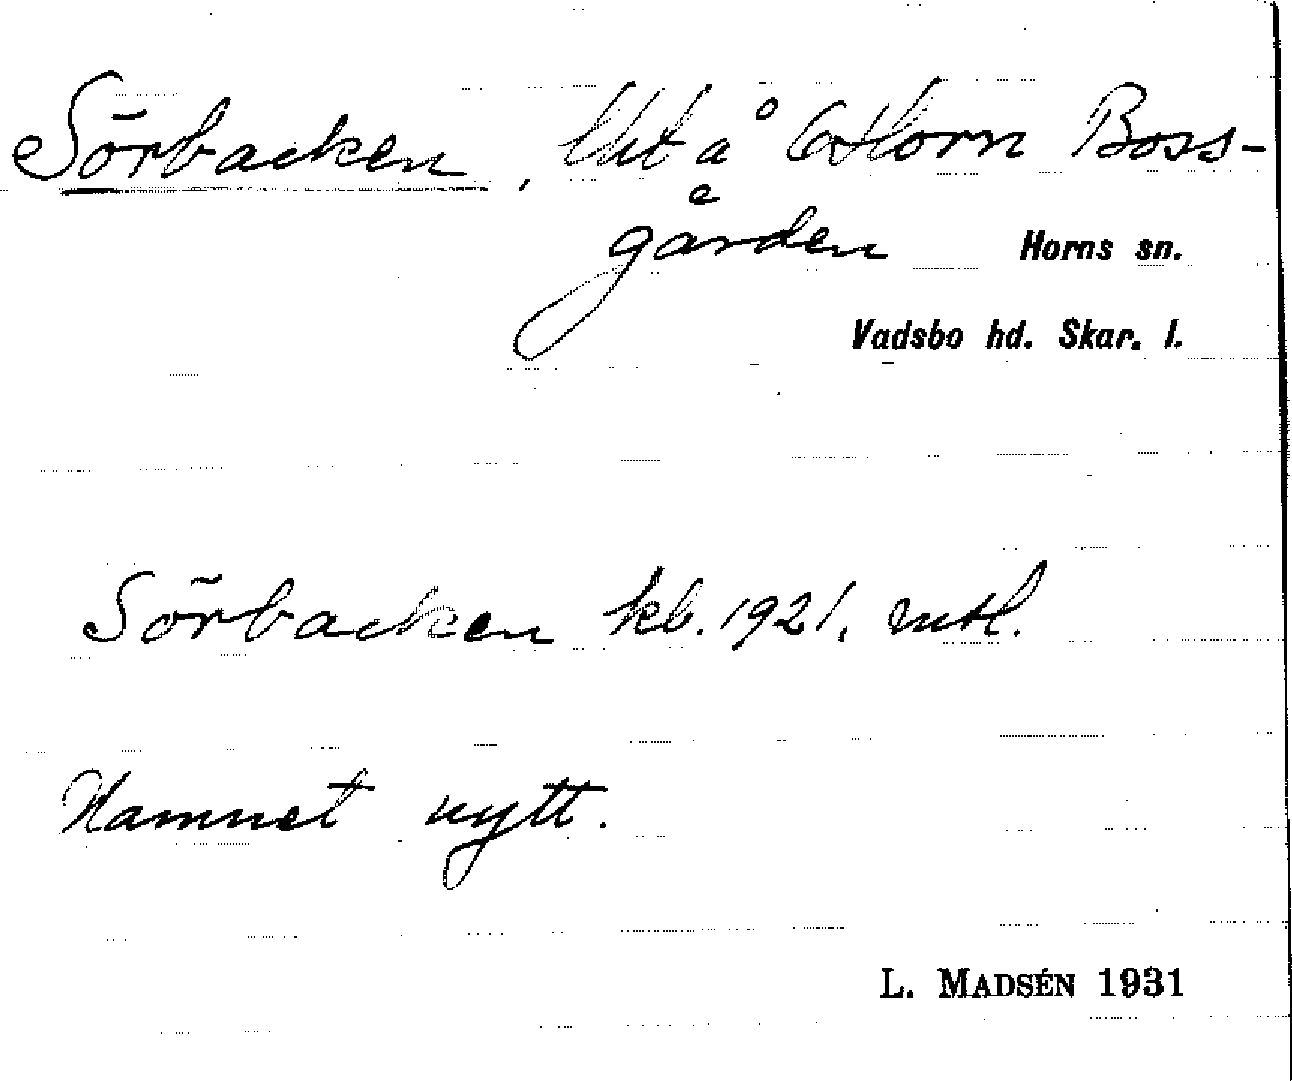 Sörbacken, lht å Horn Boss-
gården
Horns sn.
Vadsbo hd. Skar. l.
Sörbacken kb. 1921. mtl.
Namnet nytt.
L. MADSÉN 1931